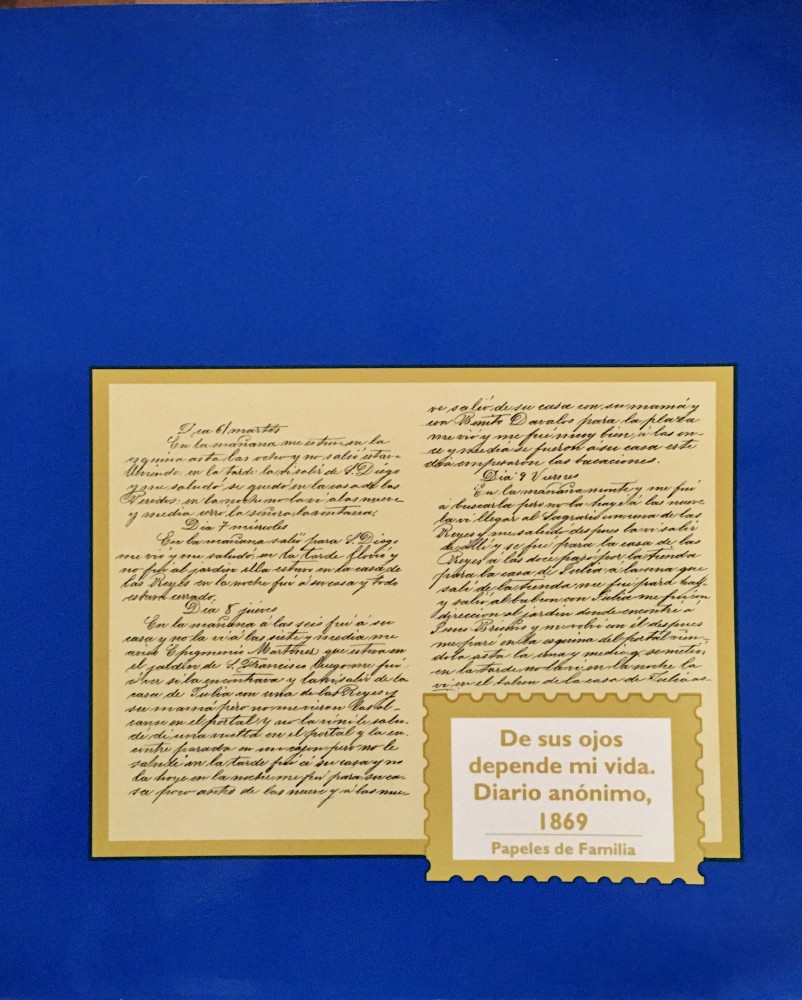 Dia 6 martes
En la mañana me estuve en la
esquina asta las ocho y no salió estava
lloviendo en la tarde la vi salir de S. Diego
y me saludó se quedó en la casa de las
Veredos; en la noche no la vi a las nueve
y media cerro la señora la ventana;
Dia 7 miercoles
En la mañana salió para S. Diego
me vio y me saludó, en la tarde llovió y
no fué al jardin ella estuvo en la casa de
las Reyes en la noche fui á su casa y todo
estava cerrado;
Dia 8 jueves
En la mañana á las seis fui á su
casa y no la vi á las siete y media me
avisó Epigmenio Martinez que estava en
el jardin de S. Francisco luego me fui
á ver si la encontrava y la vi salir de la
casa de Tulia con una de las Reyes y
su mamá pero no me vieron las al-
canse en el portal y no la vi ni le salu-
dé di una vuelta en el portal y la en-
contré parada en un cajon pero no le
saludé en la tarde fui á su casa y no
la hoye en la noche me fui para su ca-
sa poco antes de las nueve y á las nue
ve salió de su casa con su mamá y
con Benito Davalos para la plaza
me vió y me fue muy bien á las on-
ce y media se fueron a su casa este
dia empesaron las bacaciones.
Dia 9 Viernes
En la mañana monte y me fui
á buscarla pero no la hayé á las nueve
la vi llegar al Sagrario con una de las
Reyes y me saludó despues la vi salir
de alli y se fue para la casa de las
Reyes á las doce pasó por la tienda
para la casa de Tulia á la una que
sali de la tienda me fui para
y salió al balcon con Tulia me fui con
direccion al jardin donde encontré á
Jesus Brisño y me volvi con él despues
me paré en la esquina del portal vien-
dola asta la una y media q. se metió;
en la tarde no la vi en la noche la
vi en el balcon de la casa de Tulia as-
De sus ojos
depende mi vida.
Diario anónimo,
1869
Papeles de Familia